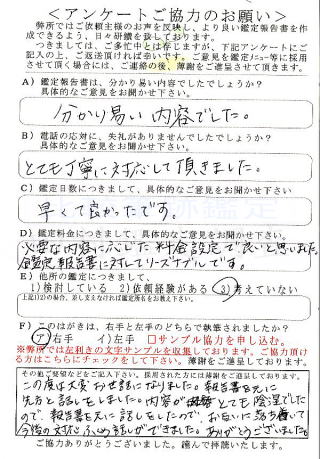 ＜アンケートご協力のお願い＞
弊所ではご依頼主様のお声を反映し、より良い鑑定報告書を作
成できるよう、日々研鑽を扱しております。
つきましては、ご多忙中とは存じますが、下記アンケートにご
記入の上、ご返送頂ければ幸いです。ご意見を鑑定ﾒﾆｭｰ等に採用
させて頂く場合には、ご連絡の後、薄謝をご進呈させて頂きます。
A）鑑定報告書は、分かり易い内容でしたでしょうか？
具体的なご意見をお聞かせ下さい。
分かり易い内容でした。
B）電話の応対に、失礼がありませんでしたでしょうか？
具体的なご意見をお聞かせ下さい。
とても丁寧に対応して頂きました。
C）鑑定日数につきまして、具体的なご意見をお聞かせ下さい
早くて良かったです。
D）鑑定料金につきまして、具体的なご意見をお聞かせ下さい
必要な内容に応じた料金設定で良いと思いました。
鑑定報告書に対してリーズナブルです。
E）他所の鑑定につきまして、
1)検討している 2)依頼経験がある 3)考えていない
上記1)2)の場合、差し支えなければ鑑定所名をお教え下さい。
F）このはがきは、右手と左手のどちらで執筆されましたか？
ア)右手 イ)左手 □サンプル協力を申し込む。
※弊所では左利きの文字サンプルを収集しております。ご協力頂け
る方はこちらにチェックをして下さい。薄謝をご進呈しております。
その他ご要望などをご記入下さい。採用された方には薄謝を進呈しております。
この度は大変お世話になりました。報告書を元に
先方と話しをしました。内容が とても陰湿でした
ので、報告書を元に話しをしたので、お互いに落ち着いて
今後の対応 話しができました。ありがとうございました。
ご協力ありがとうございました。謹んで拝読いたします。